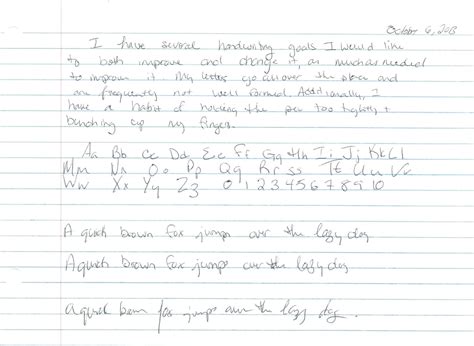 October 6, 2013
I have several handwriting goals I would like
to both improve and change it, as much as needed
to improve it. My letters go all over the place and
are frequently not well formed. Additionally, I
have a habit of holding the pen too tightly &
bunching up my fingers.
Aa Bb Cc Dd Ee Ff Gg Hh Ii Jj Kk Ll
Mm Nn Oo Pp Qq Rr Ss Tt Uu Vv
Ww Xx Yy Zz 0 1 2 3 4 5 6 7 8 9 10
A quick brown fox jumps over the lazy dog
A quick brown fox jumps over the lazy dog
A quick brown fox jumps over the lazy dog.